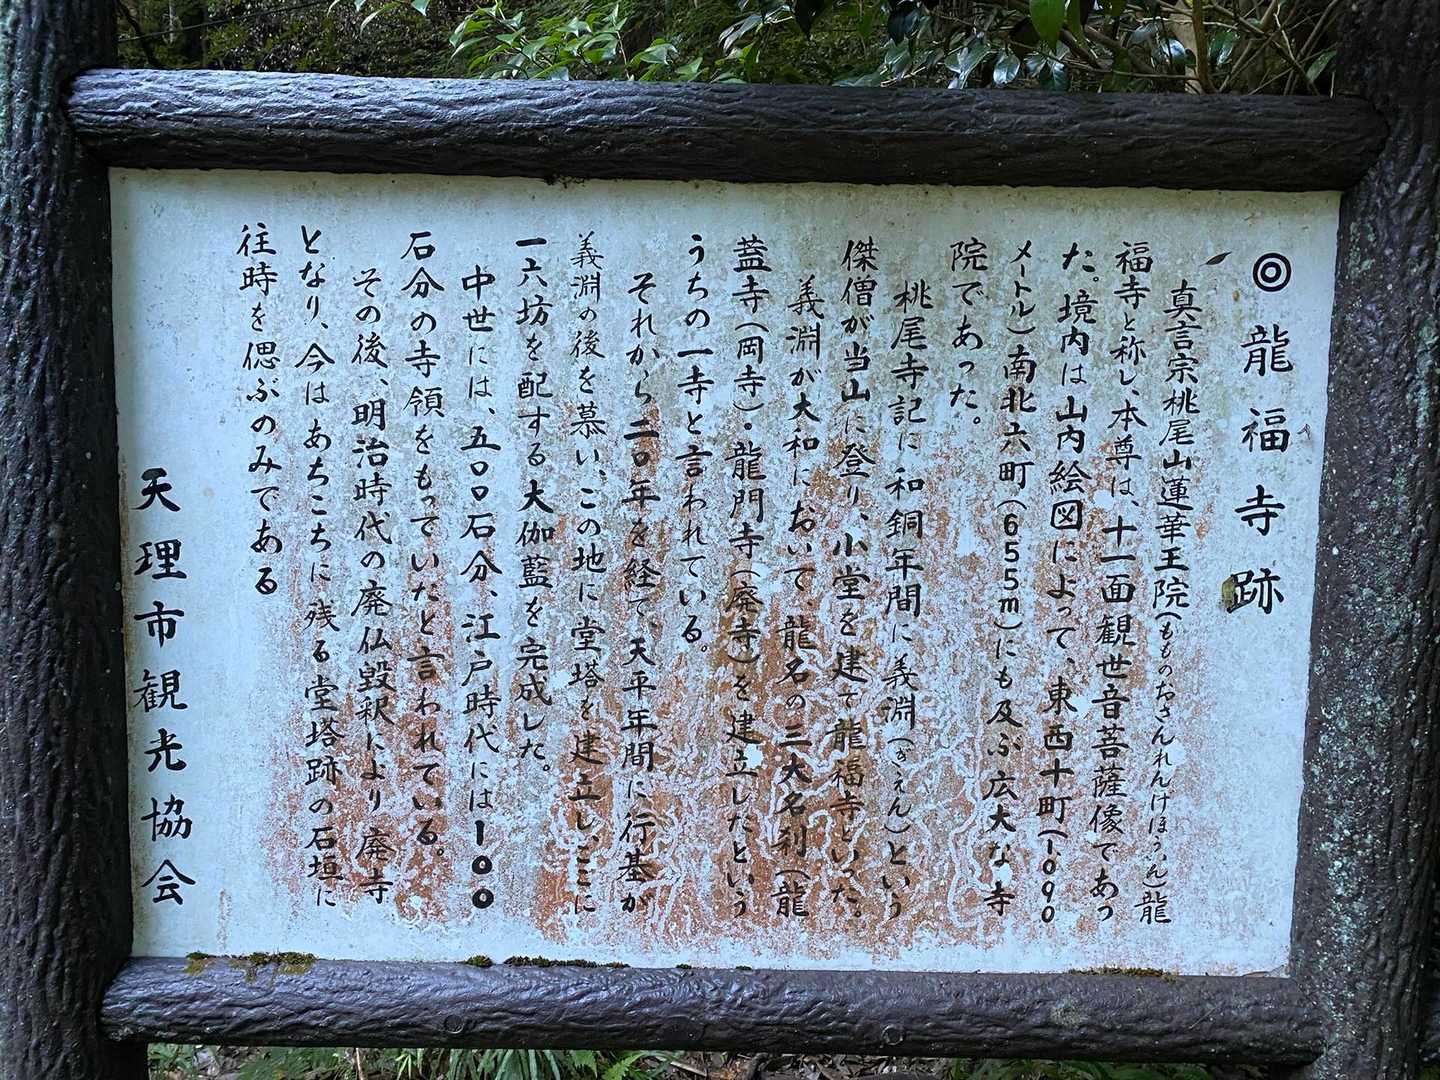 ◎龍福寺跡
真言宗桃尾山蓮華王院(もものおさんれんげほういん)龍
福寺と称し、本尊は、十一面観世音菩薩像であっ
た。境内は山内絵図によって、東西十町(1090
メートル)南北六町(655m)にも及ぶ広大な寺
院であった。
桃尾寺記に和銅年間に義淵(ぎえん)という
傑僧が当山に登り、小堂を建て龍福寺といった。
義淵が大和において、龍名の三大名刹(龍
蓋寺(岡寺)・龍門寺(廃寺)を建立したという
うちの一寺と言われている。
それから二〇年を経て、天平年間に行基が
義淵の後を慕い、この地に堂塔を建立し、ここに
一六坊を配する大伽藍を完成した。
中世には、五〇〇石分、江戸時代には100
石分の寺領をもっていたと言われている。
その後、明治時代の廃仏毀釈により廃寺
となり、今はあちこちに残る堂塔跡の石垣に
往時を偲ぶのみである
天理市観光協会